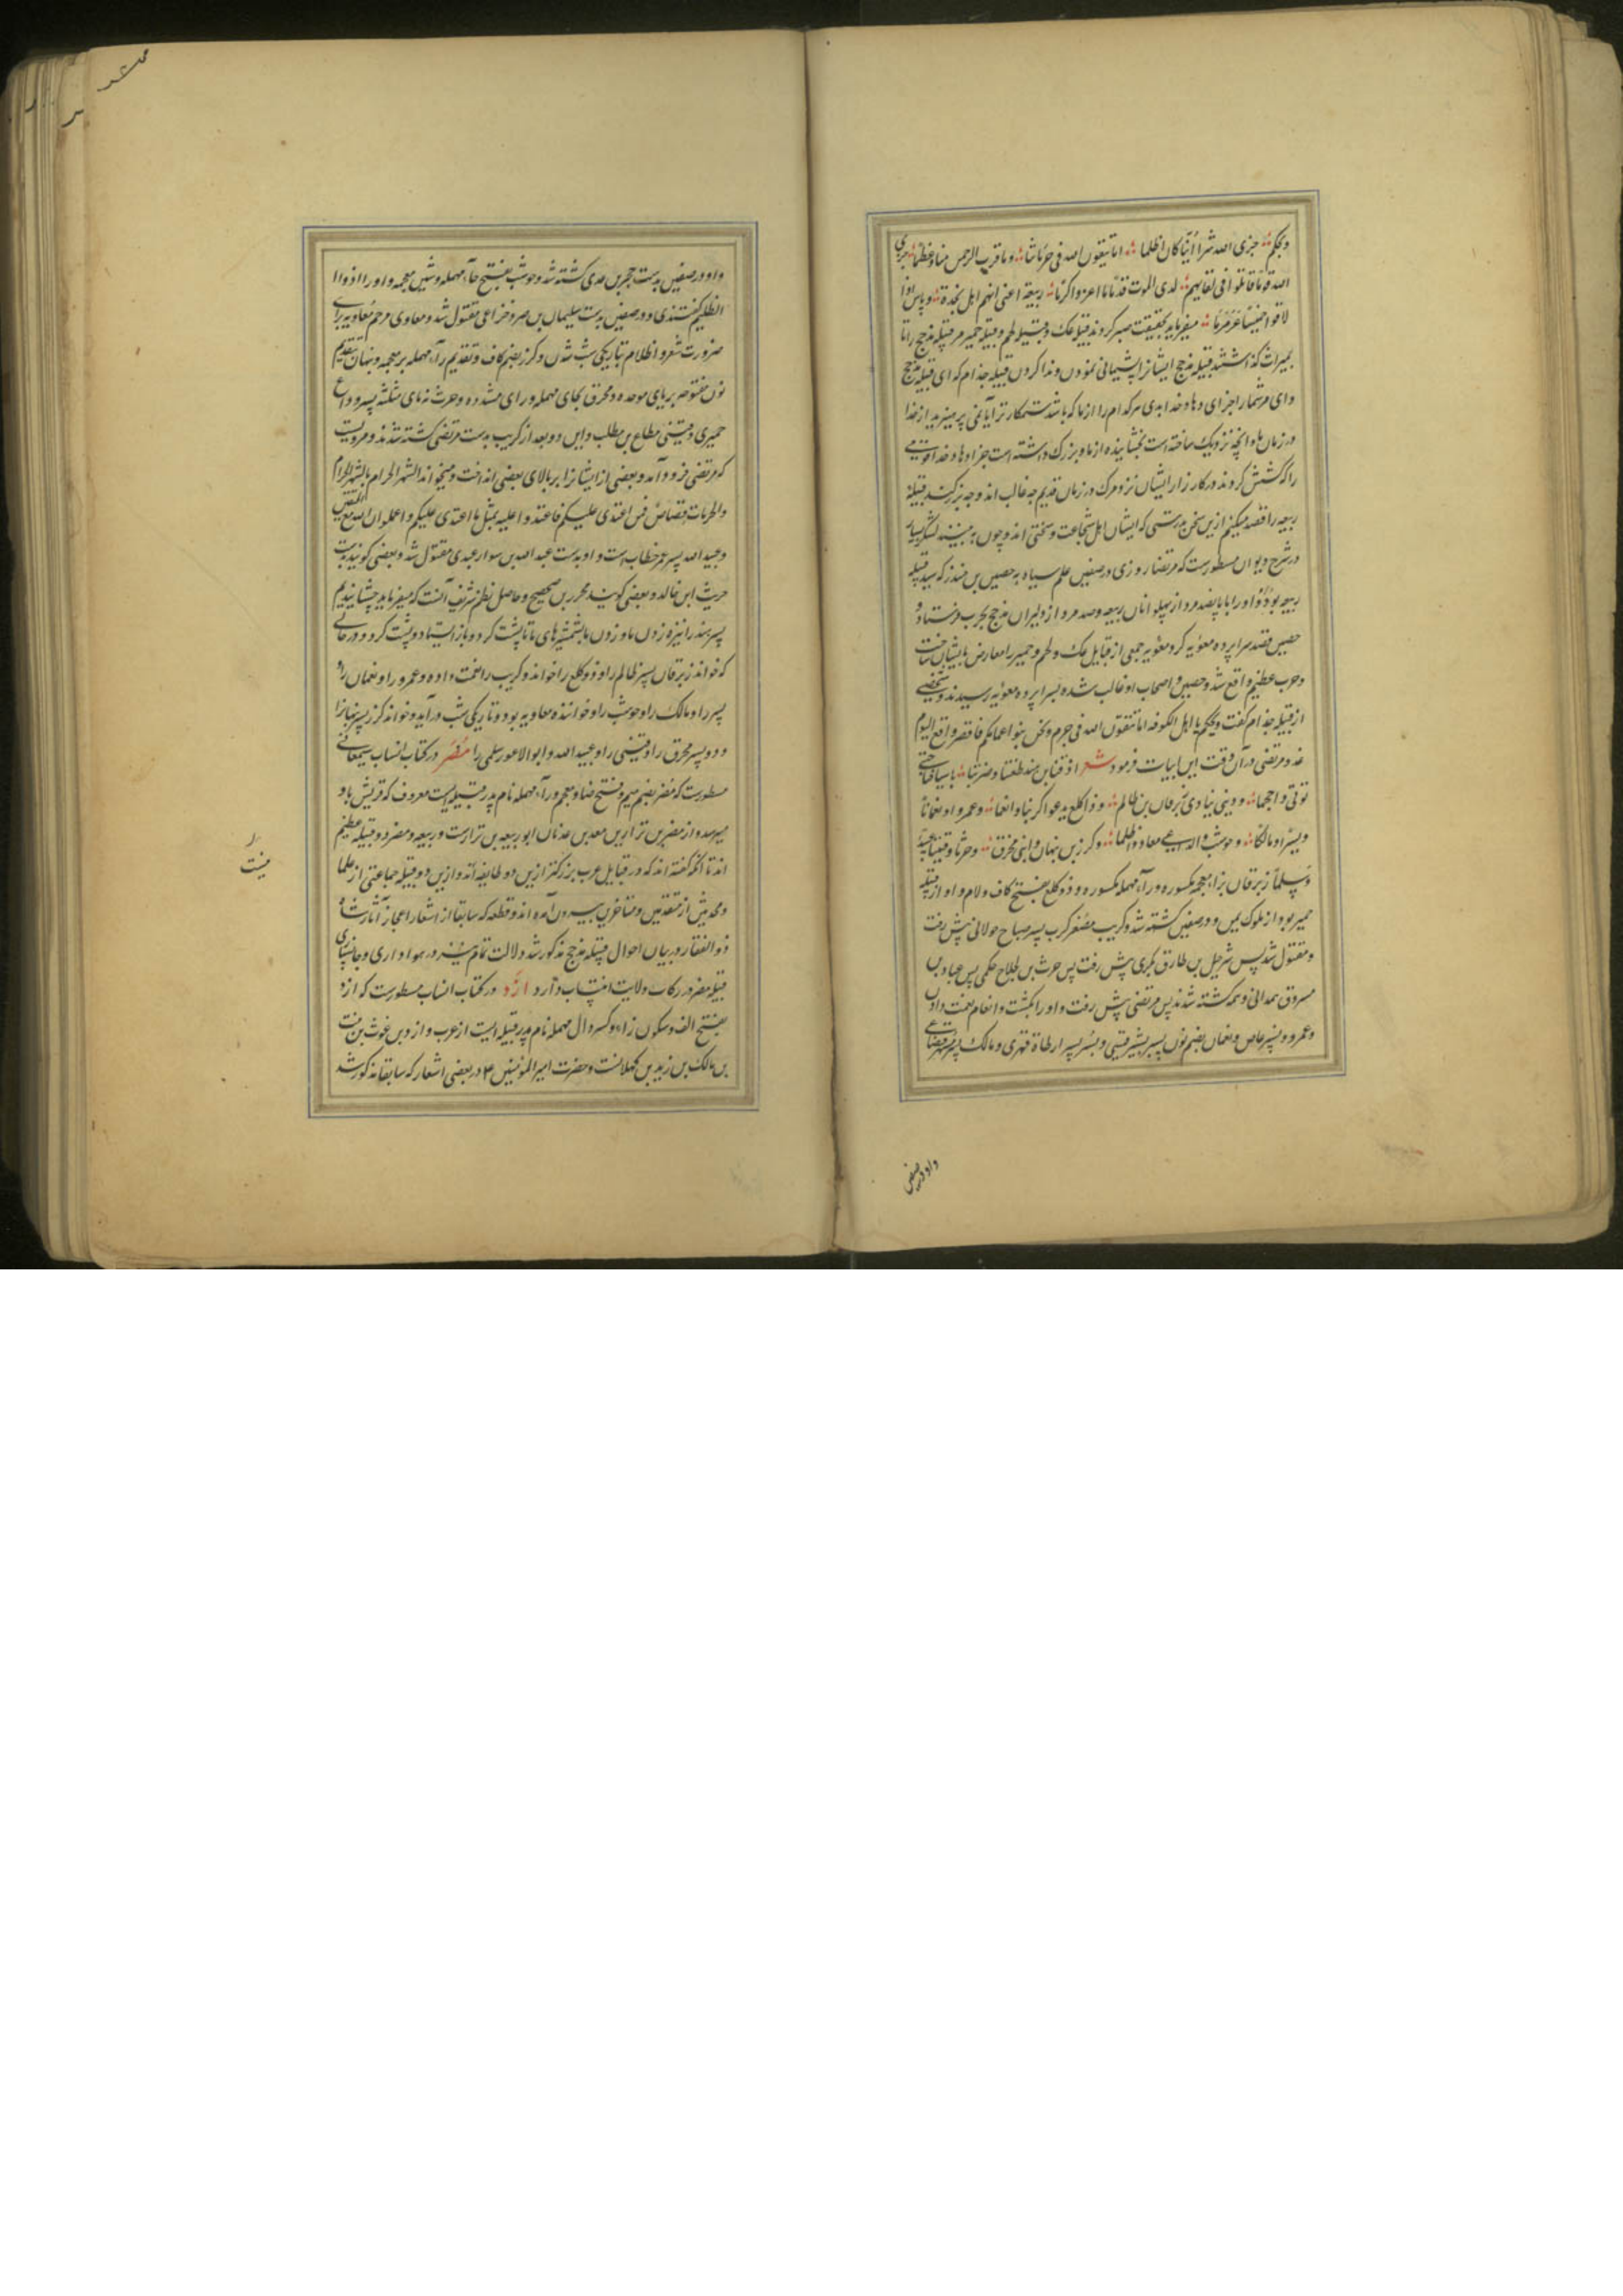 ویحکم جزی الله شرا اینا کان اظلما اما تتقون الله فی حرماتنا وما قرب الرحمن منا وعظما جزی
الله قوما قاتلوا فی لقائهم لدی الموت قدما ما اعز واکرما ربیعة اعنی انهم اهل نجدة و باس اذا
لاقوا خمیسا عرمرما میفرماید بحقیقت صبر کردند قبیله عک و قبیله لخم و قبیله حمیر مر قبیله مذحج را تا
بمیراث گذاشتند قبیله مذحج ایشانرا پشیمانی نمودن و ندا کردن قبیله جذام که ای قبیله مذحج
وای مر شما را جزای دهاد خدا بدی هر کدام را از ما که باشد ستمکارتر آیا نمی پرهیزید از خدا
در زمان ما و آنچه نزدیک ساخته است بخشاینده از ما و بزرک داشته است جزا دهاد خدا قومی
را که کشش کردند در کارزار ایشان نزد مرک در زمان قدیم چه غالب اند و چه بزرکند قبیله
ربیعه را قصد میکنم ازین سخن بدرستی که ایشان اهل شجاعت و سختی اند و چون به بینند لشکر بسیار
در شرح دیوان مسطورست که مرتضا روزی در صفین علم سیاه به حصین بن منذر که سید قبیله
ربیعه بود داد و او را با پانصد مرد از پهلوانان ربیعه و صد مرد از دلیران مذحج بحرب فرستاد و
حصین قصد سراپرده معویه کرد معویه جمعی از قبایل عک و لخم و حمیر را معارض بایشان ساخت
و حرب عظیم واقع شد و حصین و اصحاب او غالب شده بسراپرده معویه رسیدند و شخصی
از قبیله جذام گفت ویحکم یا اهل الکوفه اما تتقون الله فی حرم ونحن بنو اعمامکم فاقصر واقع الیوم
غد و مرتضی در آن وقت این ابیات فرمود شعر اذقنا ابن هند طعننا وضربنا باسیافنا حتی
تولی واحجما وولی ینادی زبرقان بن ظالم وذا کلع یدعو اکریبا وانعما وعمرا ونعمانا
وبسرا ومالکا وحوشب والداعی معاو واظلما وکرز بن نبهان وابنی محرق وحرثا وقینیا عبید
وسلما زبرقان بزاء معجمه مکسوره و راء مهمله مکسوره و ذوکلع بفتح کاف و لام و او از قبیله
حمیر بود از ملوک یمن و در صفین کشته شد و کریب مصغر کرب پسر صباح حولانی پیش رفت
و مقتول شد پس شرحبیل بن طارق بکری پیش رفت پس حرث بن جلاح حکمی پس عباد بن
مسروق همدانی و همه کشته شدند پس مرتضی پیش رفت و او را بکشت و انعام نعمت دادن
و عمرو پسر عاص و نعمان بضم نون پسر بشیر قینی و بسر پسر ارطاة فهری و مالک پسر مسهر قضاعی
واو در صفین
واو در صفین بدست حجر بن عدی کشته شد و حوشب بفتح حاء مهمله و شین معجمه و او را ذوا
الظلیم گفتندی و در صفین بدست سلیمان بن صرد خزاعی مقتول شد و معاوی مرخم معاویه برای
ضرورت شعر و اظلام بتاریکی شب شدن و کرز بضم کاف و تقدیم راء مهمله بر معجمه و نبهان بتقدیم
نون مفتوحه بر بای موحده و محرق بحای مهمله و رای مشدده و حرث به ثای مثلثه پسر وداع
حمیری و قینی مطاع بن مطلب و این دو بعد از کریب بدست مرتضی کشته شدند و مرویست
که مرتضی فرود آمد و بعضی از ایشانرا بر بالای بعضی انداخت و میخواند الشهر الحرام بالشهر الحرام
والحرمات قصاص فمن اعتدی علیکم فاعتدوا علیه بمثل ما اعتدی علیکم واعملوا ان الله مع المتقین
و عبید الله پسر عمر خطاب است و او بدست عبد الله بن سوار عبدی مقتول شد و بعضی کویند بدست
حریث ابن خالد و بعضی کویند محرز بن صحیح و حاصل نظم شریف آنست که میفرماید چشانیدیم
پسر هند را نیزه زدن ما و زدن ما بشمشیرهای ما تا پشت کرد و باز ایستاد و پشت کرد و در حالتی
که خواند زبرقان پسر ظالم را و ذوکلع را خواند و کریب را نعمت داده و عمرو را و نعمان را و
پسر را و مالک را و حوشب را و خوانده معاویه بود و تاریکی شب درآید و خواند کرز پسر نبهانرا
و دو پسر محرق را و قینی را و عبید الله و ابو الاعور سلمی را مُضَر در کتاب انساب سمعانی
مسطورست که مضر بضم میم و فتح ضاد معجمه و راء مهمله نام پدر قبیله ایست معروف که قریش باو
میرسد و از مضر بن نزار بن معد بن عدنان ابو ربیعه بن نزارست و ربیعه و مضر دو قبیله عظیم
اند تا آنکه گفته اند که در قبایل عرب بزرکتر ازین دو طایفه اند و ازین دو قبیله جماعتی از علما
و محدثین از متقدمین و متاخرین بیرون آمده اند و قطعه که سابقا از اشعار اعجاز آثار شاه
ذو الفقار در بیان احوال قبیله مذحج مذکور شد دلالت تمام بر هواداری و جانسپاری
قبیله مضر در رکاب ولایت انتساب دارد اَزد در کتاب انساب مسطورست که ازد
بفتح الف و سکون زاء و کسر دال مهمله نام پدر قبیله ایست از عرب و ازد بن غوث بن نبت
بن مالک بن زید بن کهلانست و حضرت امیر المؤمنین در بعضی اشعار که سابقا مذکور شد